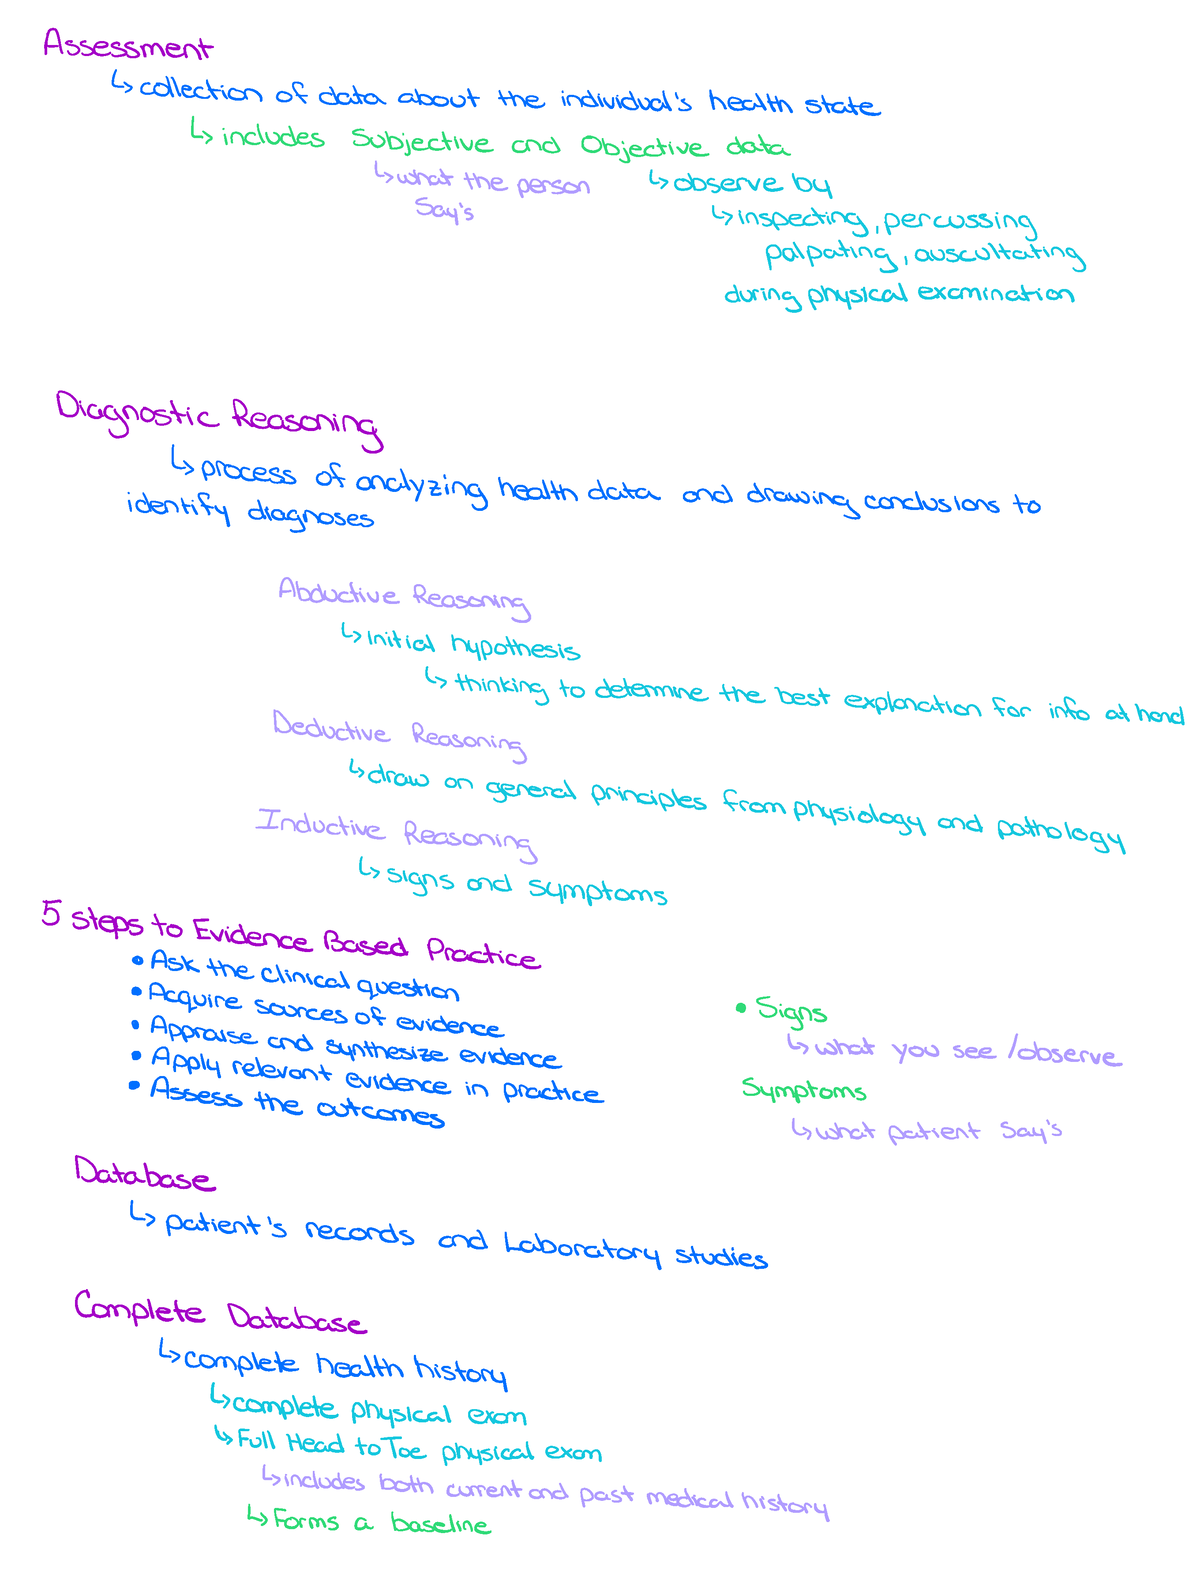 Assessment
↳ collection of data about the individual's health state
↳ includes Subjective and Objective data
↳ what the person
Say's
↳ observe by
↳ inspecting, percussing
palpating, auscultating
during physical examination
Diagnostic Reasoning
↳ process of analyzing health data and drawing conclusions to
identify diagnoses
Abductive Reasoning
↳ initial hypothesis
↳ thinking to determine the best explanation for info at hand
Deductive Reasoning
↳ draw on general principles from physiology and pathology
Inductive Reasoning
↳ signs and symptoms
5 steps to Evidence Based Practice
• Ask the clinical question
• Acquire sources of evidence
• Appraise and synthesize evidence
• Apply relevant evidence in practice
• Assess the outcomes
• Signs
↳ what you see / observe
Symptoms
↳ what patient Say's
Database
↳ patient's records and Laboratory studies
Complete Database
↳ complete health history
↳ complete physical exam
↳ Full Head to Toe physical exam
↳ includes both current and past medical history
↳ Forms a baseline